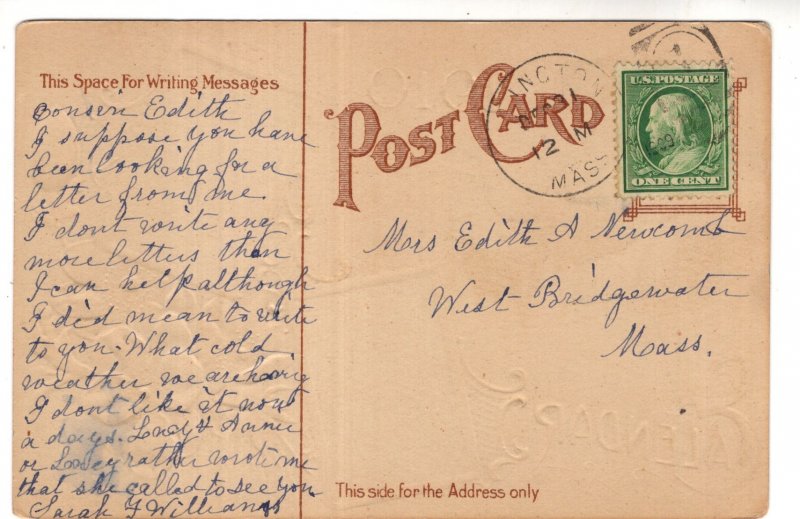 This Space For Writing Messages
Consin Edith
I suppose you have
been looking for a
letter from me.
I dont write any
more letters than
I can help although
I did mean to write
to you. What cold
weather we are having
I dont like it now
a days. Lucy & Annie
or Lucy rather wrote me
that she called to see you
Sarah F Williams
POST CARD
INGTON
DEC 21
12 M
MASS
1909
U.S. POSTAGE
ONE CENT
Mrs Edith A Newcomb
West Bridgewater
Mass.
This side for the Address only